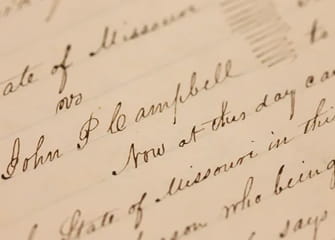 ate of Missouri
vs
John P Campbell
to
Now at this day ca
State of Missouri in this
son who being
says